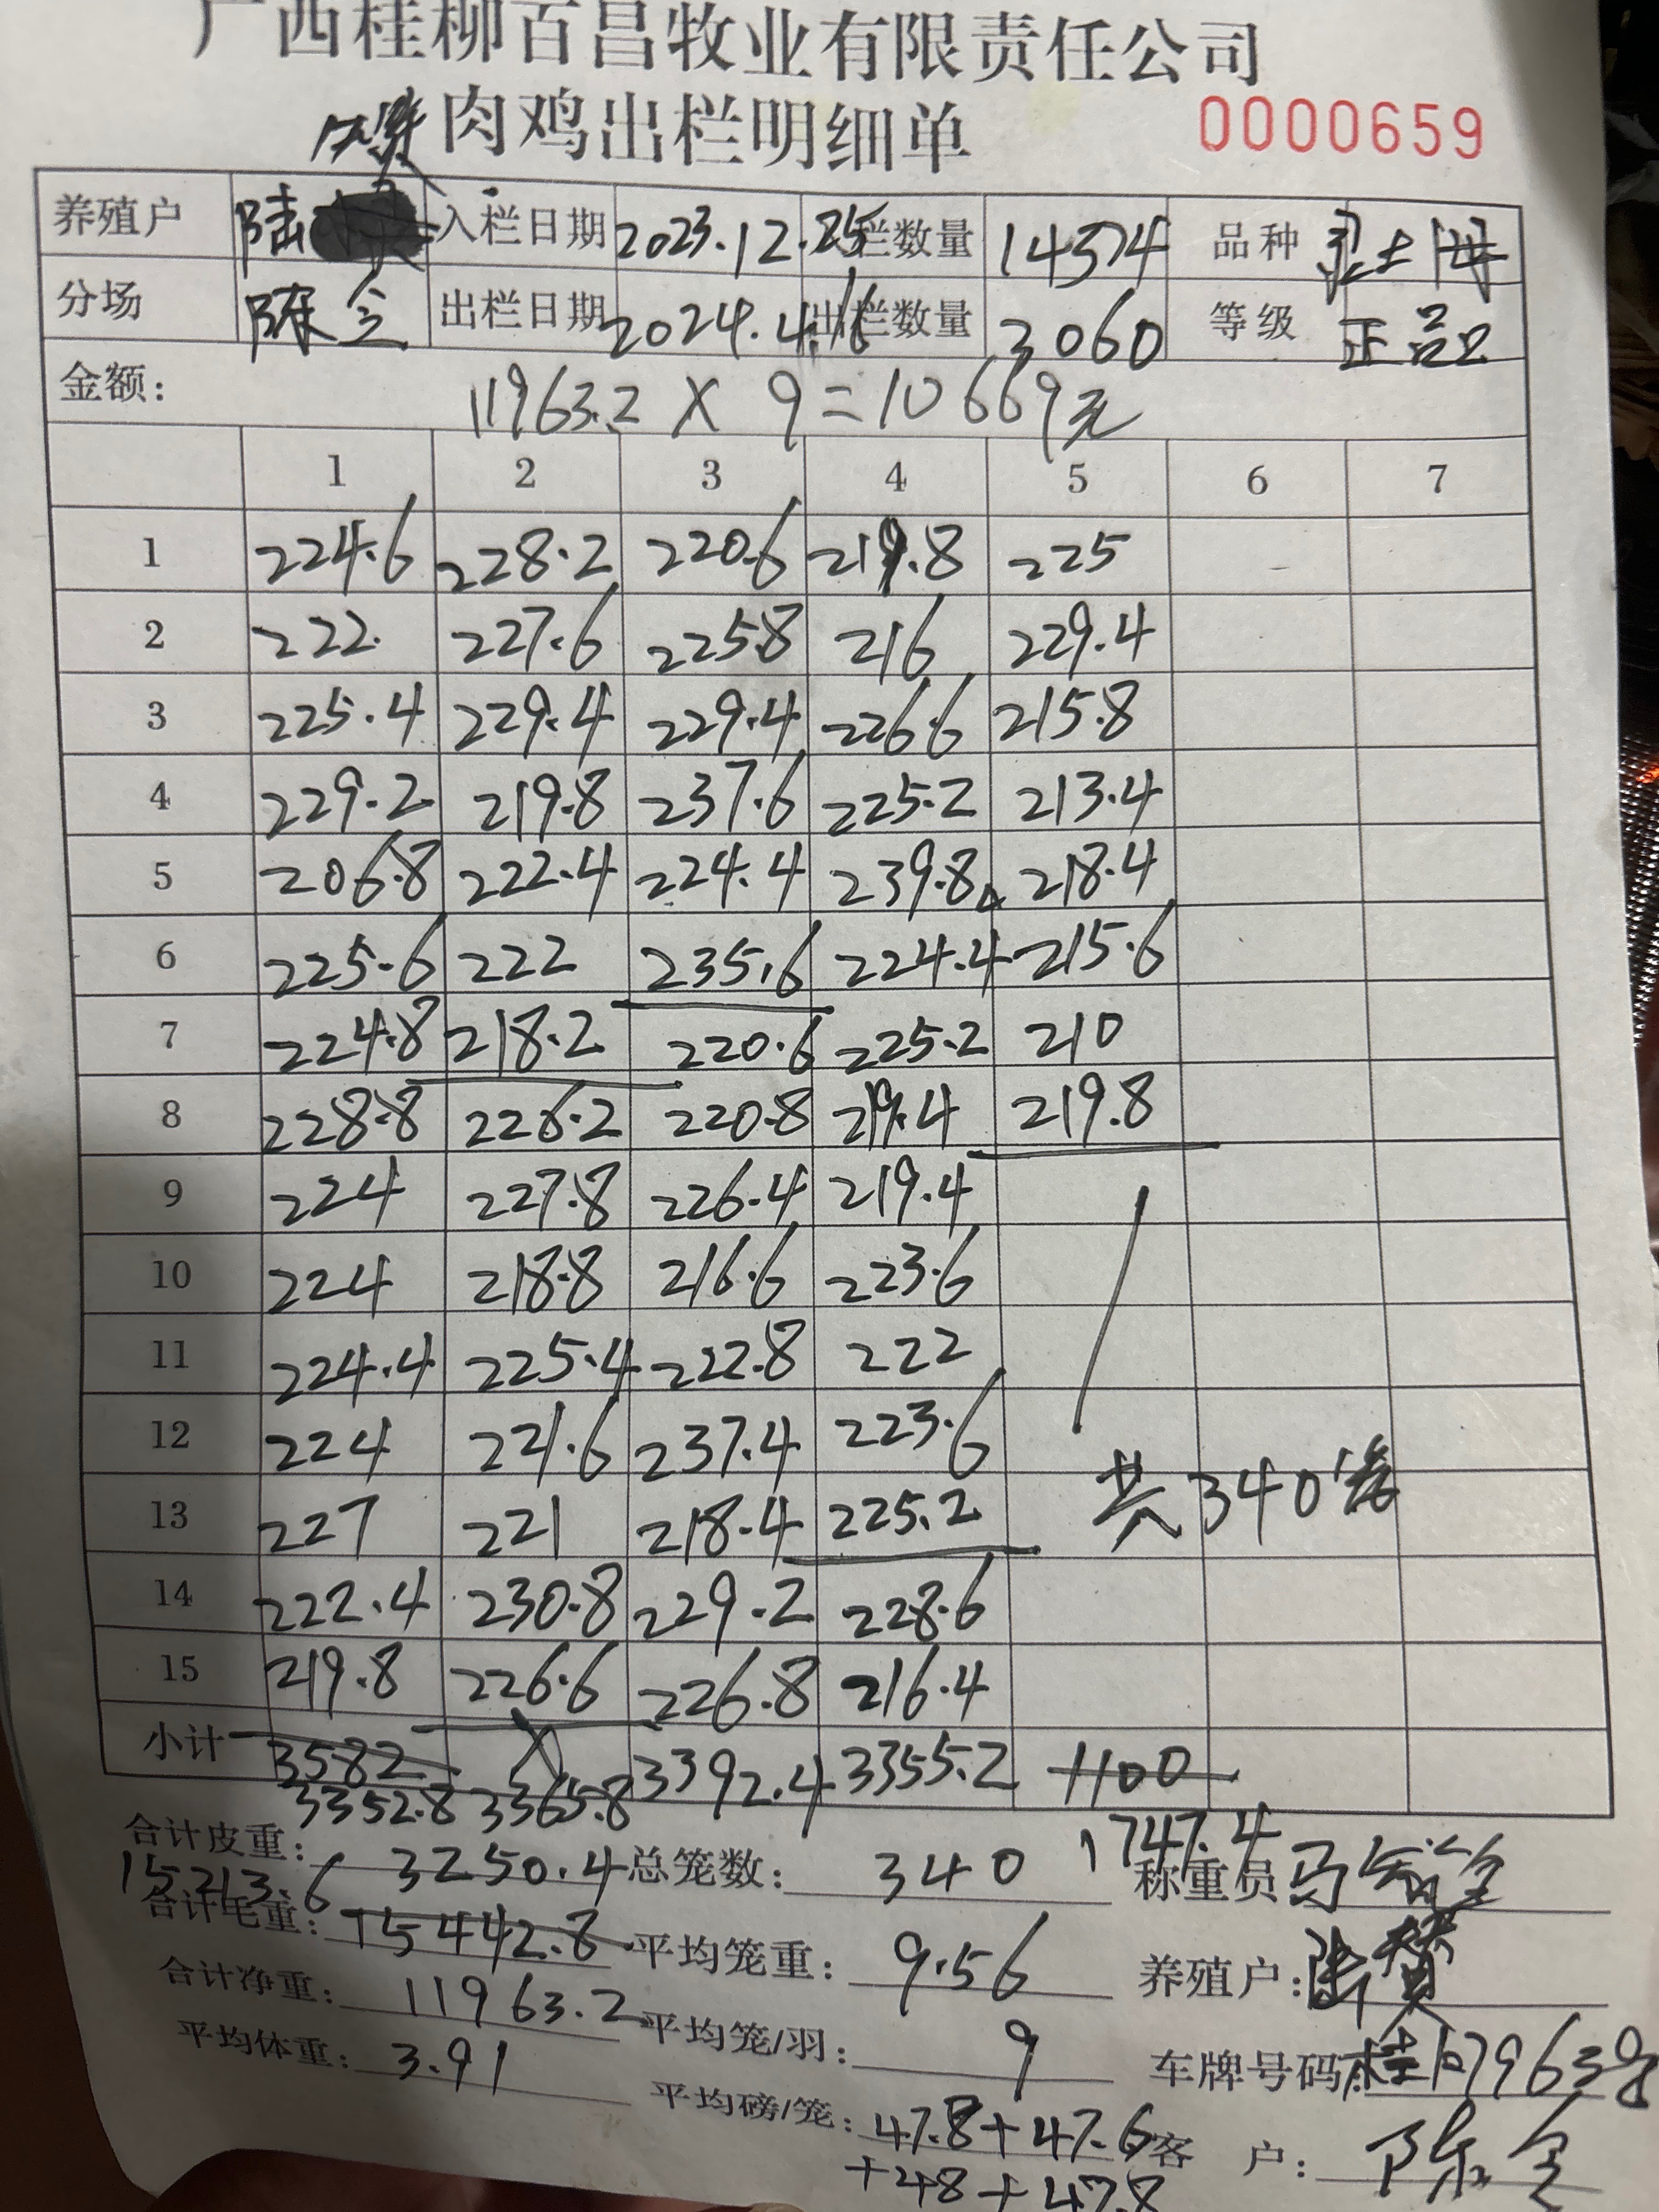 广西桂柳百昌牧业有限责任公司
肉鸡出栏明细单 0000659
养殖户 陆 入栏日期 2023.12.25 栏数量 14574 品种 土
分场 陈全 出栏日期 2024.4.16 出栏数量 3060 等级 正品
金额: 11963.2 X 9=10 669元
1 2 3 4 5 6 7
1 224.6 228.2 220.6 219.8 225
2 222. 227.6 225.8 216 229.4
3 225.4 229.4 229.4 226.6 215.8
4 229.2 219.8 237.6 225.2 213.4
5 206.8 222.4 224.4 239.8 218.4
6 225.6 222 235.6 224.4 215.6
7 224.8 218.2 220.6 225.2 210
8 228.8 226.2 220.8 219.4 219.8
9 224 227.8 226.4 219.4
10 224 218.8 216.6 223.6
11 224.4 225.4 222.8 222
12 224 221.6 237.4 223.6
13 227 221 218.4 225.2 共340笼
14 222.4 230.8 229.2 228.6
15 219.8 226.6 226.8 216.4
小计 3582 X 3392.4 3355.2 1100
3352.8 3365.8 1747.4
合计皮重: 3250.4 总笼数: 340 称重员 马
15213.6
合计毛重: 15442.8 平均笼重: 9.56 养殖户: 陆
合计净重: 11963.2 平均笼/羽: 9 车牌号码 桂
平均体重: 3.91 平均磅/笼: 47.8+47.6 客 户: 陈全
+48+47.8